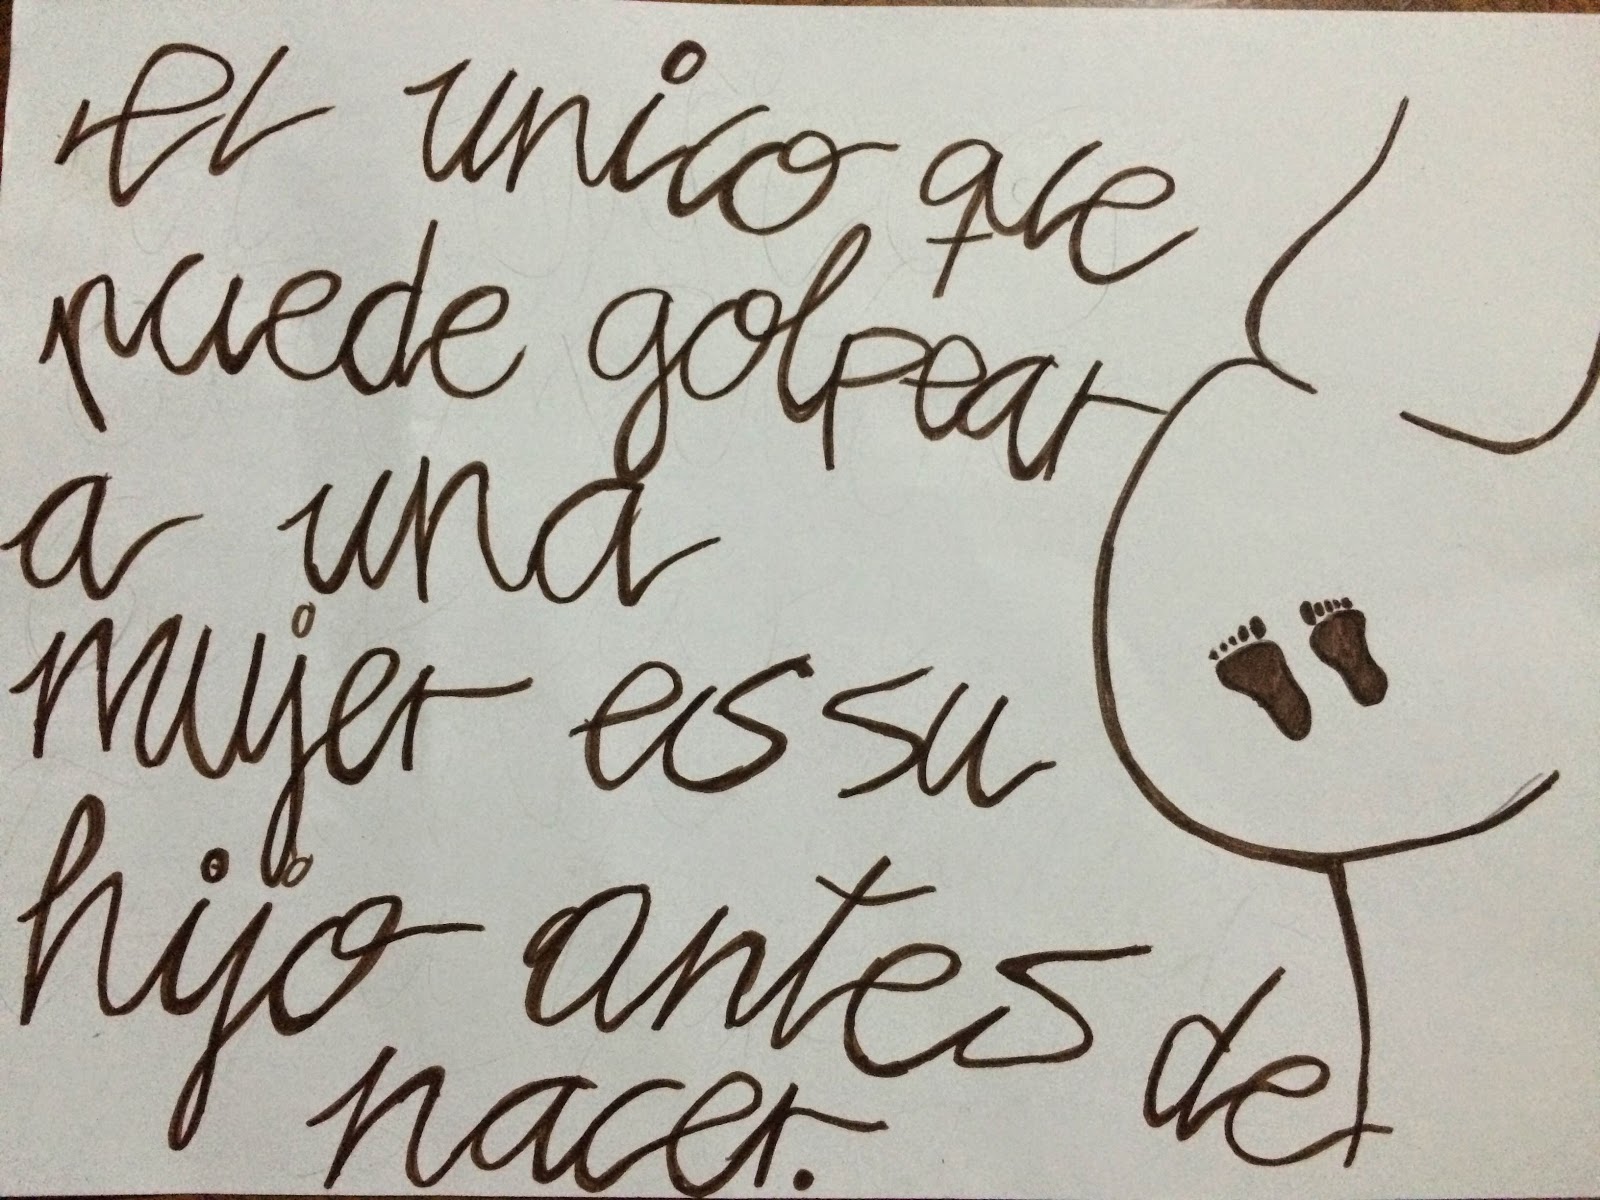 El unico que
puede golpear
a una
mujer es su
hijo antes de
nacer.